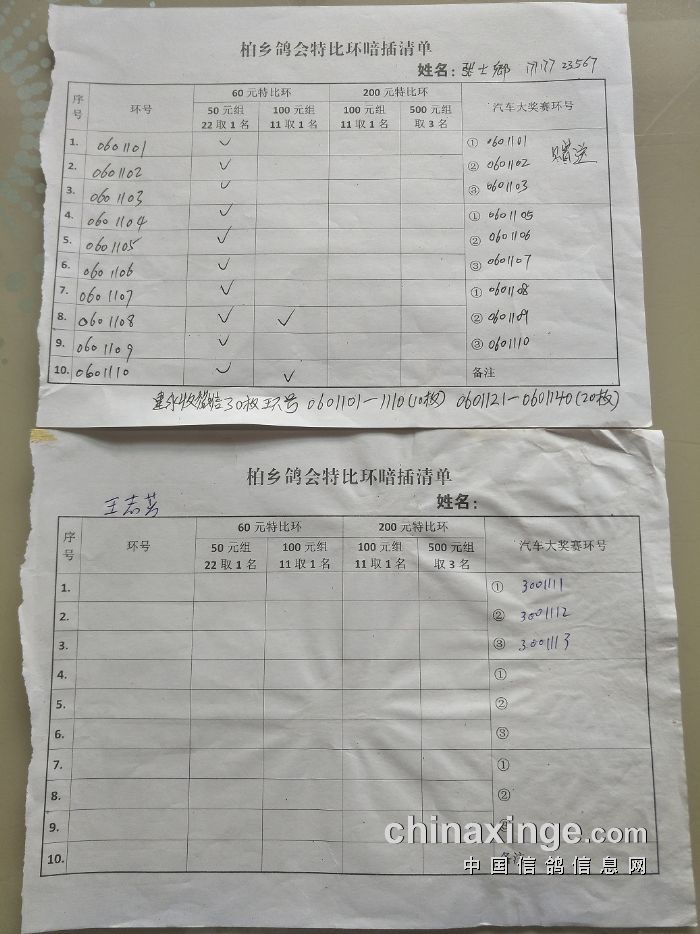 柏乡鸽会特比环暗插清单
姓名：张士乡 23567
序号 环号 60元特比环 200元特比环 汽车大奖赛环号
50元组 22取1名 100元组 11取1名 100元组 11取1名 500元组 取3名
1. 0601101 ✓ ① 0601101
2. 0601102 ✓ ② 0601102
3. 0601103 ✓ ③ 0601103
4. 0601104 ✓ ① 0601105
5. 0601105 ✓ ② 0601106
6. 0601106 ✓ ③ 0601107
7. 0601107 ✓ ① 0601108
8. 0601108 ✓ ✓ ② 0601109
9. 0601109 ✓ ③ 0601110
10. 0601110 ✓ ✓ 备注
30枚环号 0601101-1110(10枚) 0601121-0601140(20枚)
柏乡鸽会特比环暗插清单
王志 姓名：
序号 环号 60元特比环 200元特比环 汽车大奖赛环号
50元组 22取1名 100元组 11取1名 100元组 11取1名 500元组 取3名
1. ① 3001111
2. ② 3001112
3. ③ 3001113
4. ①
5. ②
6. ③
7. ①
8. ②
9.
10. 备注
chinaxinge.com
中国信鸽信息网